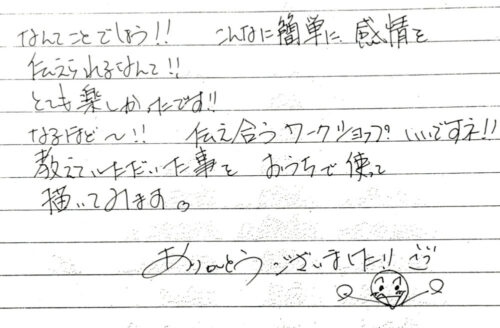 なんてことでしょう!! こんなに簡単に、感情を
伝えられるなんて!!
とても楽しかったです!!
なるほど〜!! 伝え合うワークショップ いいですネ!!
教えていただいた事を おうちで使って
描いてみます。
ありがとうございました!!